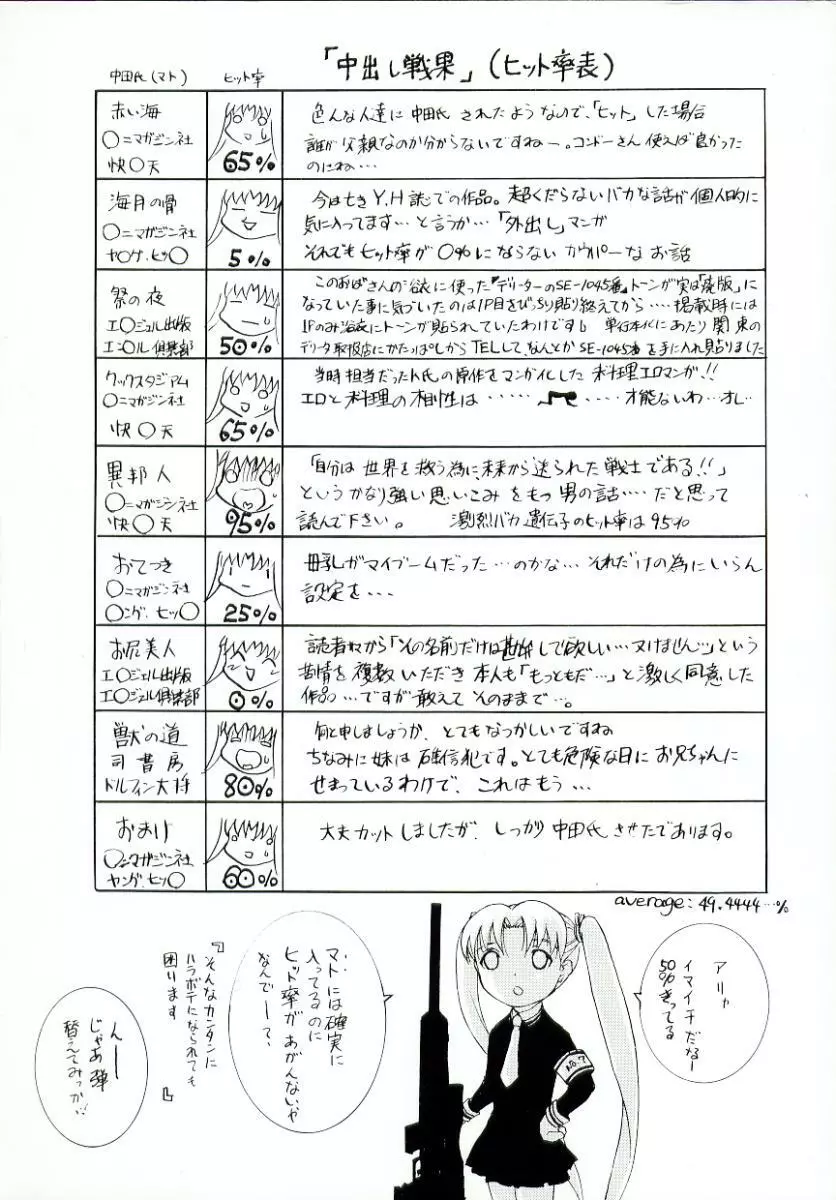 「中出し戦果」(ヒット率表)
中田氏(マト)
ヒット率
赤い海
〇ニマガジン社
快〇天
65%
色んな人達に中田氏されたようなので、「ヒット」した場合
誰が父親なのか分からないですねー。コンドーさん使えば良かった
のにね…
海月の骨
〇ニマガジン社
ヤ〇グ.ヒッ〇
5%
今は亡きY.H誌での作品。超くだらないバカな話が個人的に
気に入ってます…と言うか…「外出し」マンガ
それでもヒット率が0%にならないカウパーなお話
祭の夜
エ〇ジェル出版
エン〇ル倶楽部
50%
このおばさんの浴衣に使った『デリーターのSE-1045番』トーンが実は「廃版」に
なっていた事に気づいたのは1P目をびっちり貼り終えてから…掲載時には
1Pのみ浴衣にトーンが貼られていたわけです。単行本化にあたり関東の
デリータ取扱店にかたっぱしからTELして、なんとかSE-1045番を手に入れ貼りました
クックスタジアム
〇ニマガジン社
快〇天
65%
当時担当だったト氏の原作をマンガ化した料理エロマンガ!!
エロと料理の相性は……
…才能ないわ…オレ…
異邦人
〇ニマガジン社
快〇天
95%
「自分は世界を救う為に、未来から送られた戦士である!!」
というかなり強い思いこみをもつ男の話…だと思って
読んで下さい。 激烈バカ遺伝子のヒット率は95%
おてつき
〇ニマガジン社
〇ング.ヒッ〇
25%
母乳がマイブームだった…のかな…それだけの為にいらん
設定を…
お尻美人
エ〇ジェル出版
エ〇ジェル倶楽部
0%
読者様から「その名前だけは勘弁して欲しい…ヌけません…」という
苦情を複数いただき本人も「もっともだ…」と激しく同意した
作品…ですが敢えてそのままで…。
獣の道
司書房
ドルフィン大将
80%
何と申しましょうか、とてもなつかしいですね
ちなみに妹は確信犯です。とても危険な日にお兄ちゃんに
せまっているわけで、これはもう…
おまけ
〇ニマガジン社
ヤング.ヒッ〇
60%
大丈カットしましたが、しっかり中田氏させたであります。
average:49.4444…%
アリャ
イマイチだなー
50%きってる
マトには確実に
入ってるのに
ヒット率が
あがんないや
なんでー?、
『そんなカンタンに
ハラボテになられても
困ります』
んー
じゃあ弾
替えてみっか…